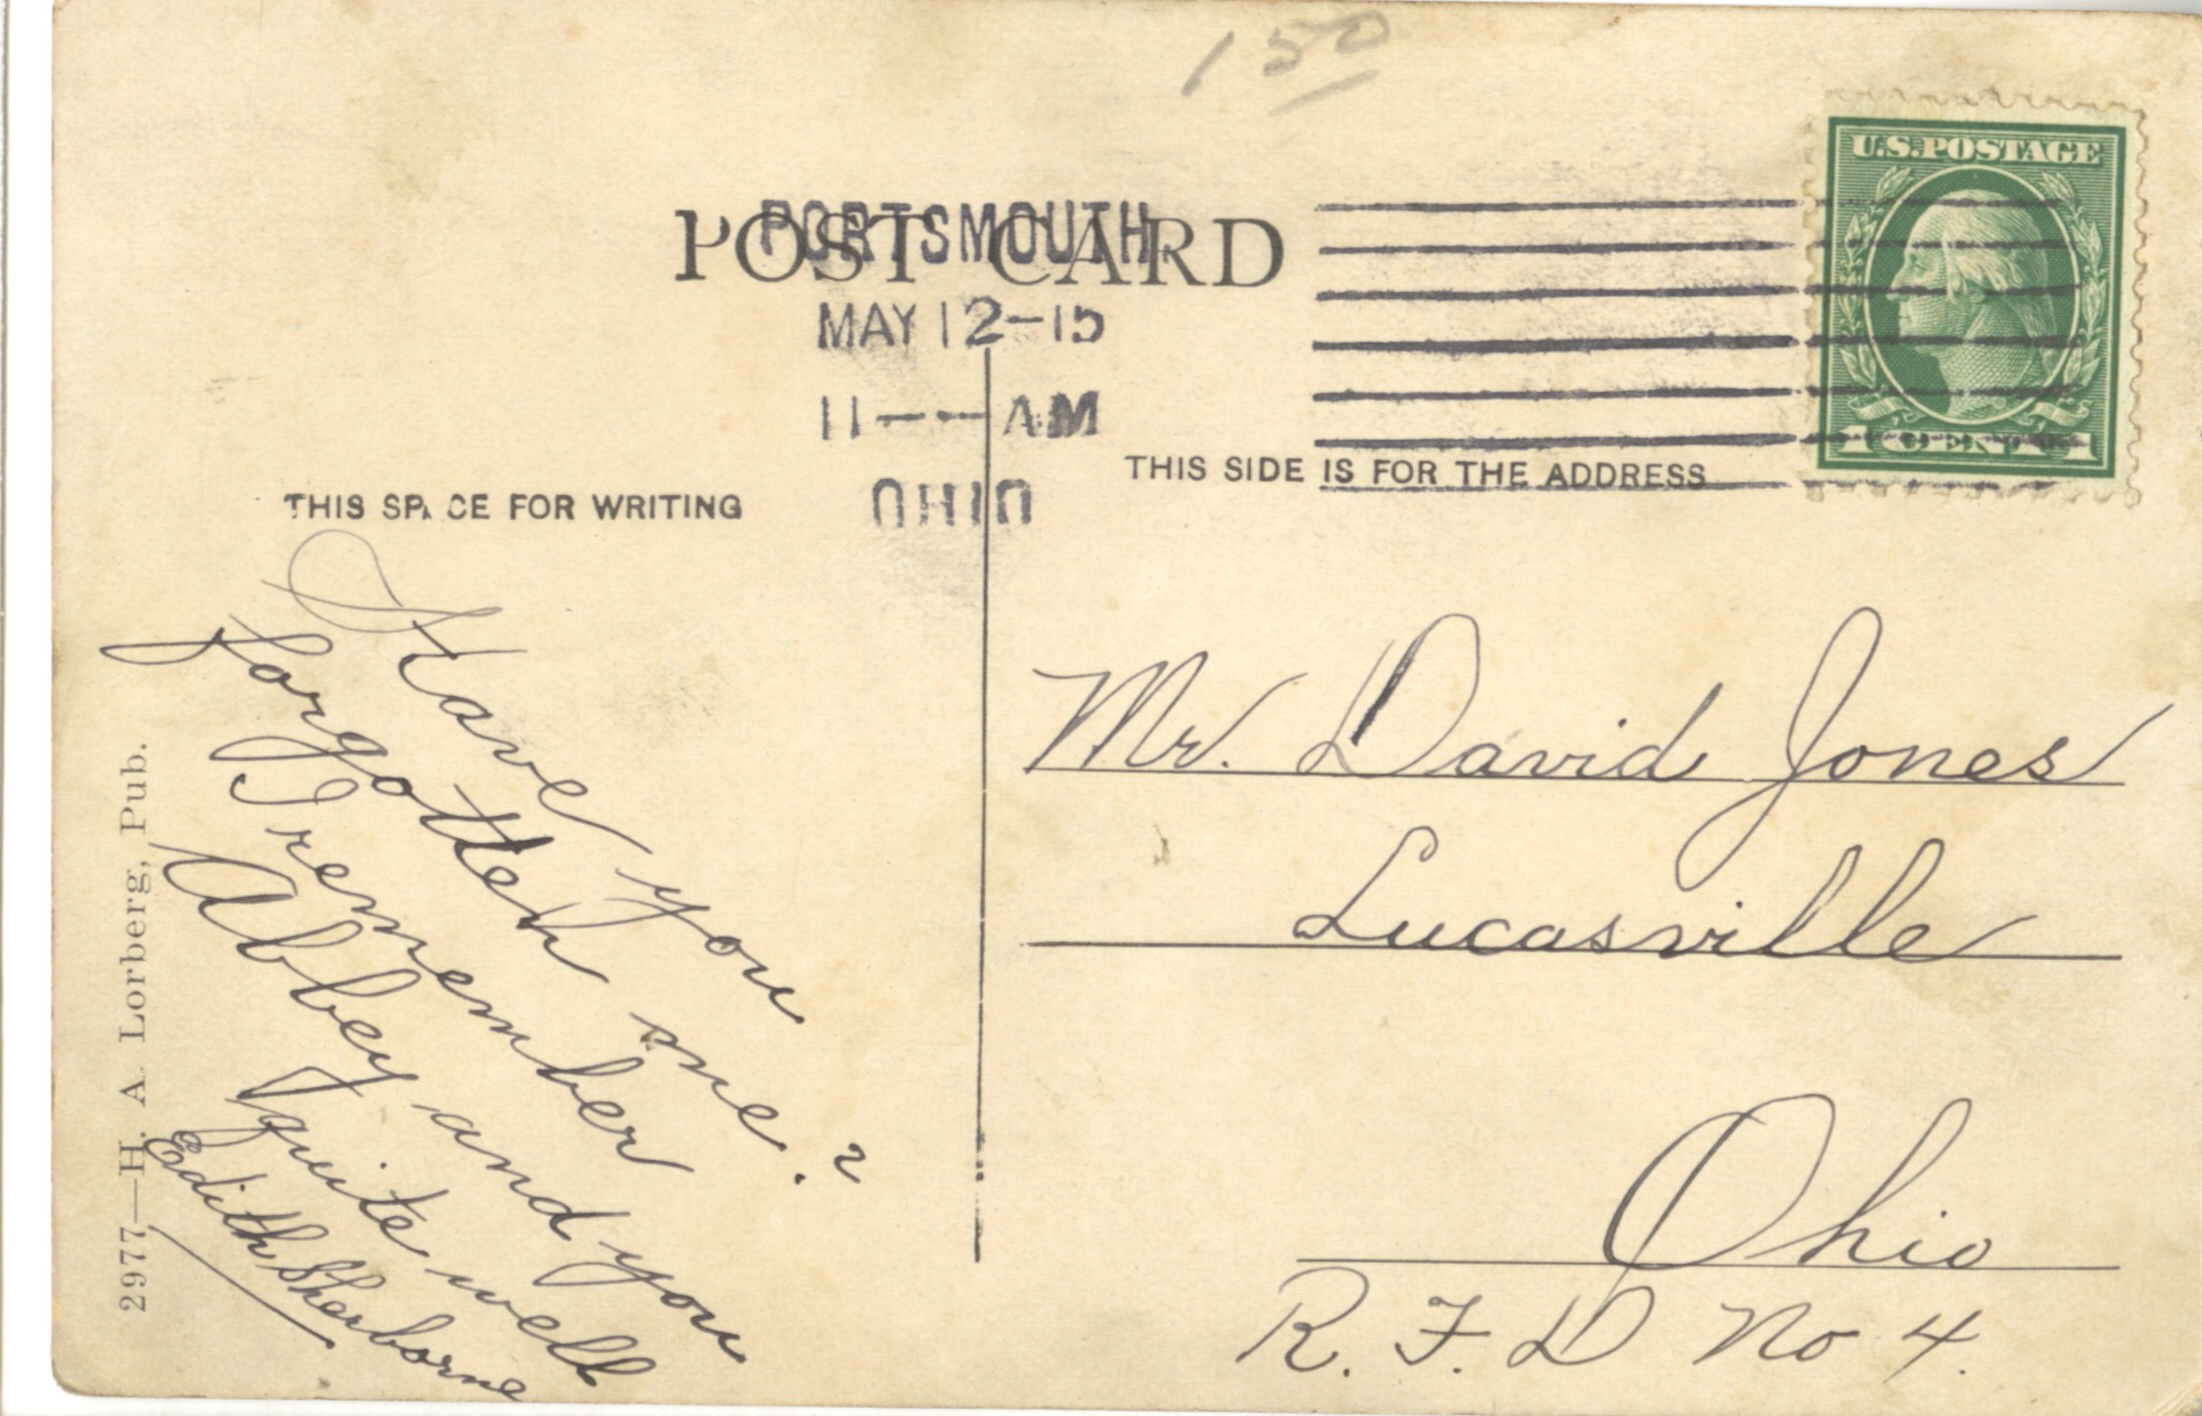 150
U.S. POSTAGE
1 CENT 1
POST CARD
PORTSMOUTH,
MAY 12-15
11--AM
OHIO
THIS SPACE FOR WRITING
THIS SIDE IS FOR THE ADDRESS
Have you
forgotten me?
I remember
Abbey and you
quite well
Edith Sherborne
2977—H. A. Lorberg, Pub.
Mr. David Jones
Lucasville
Ohio
R. F. D No 4.